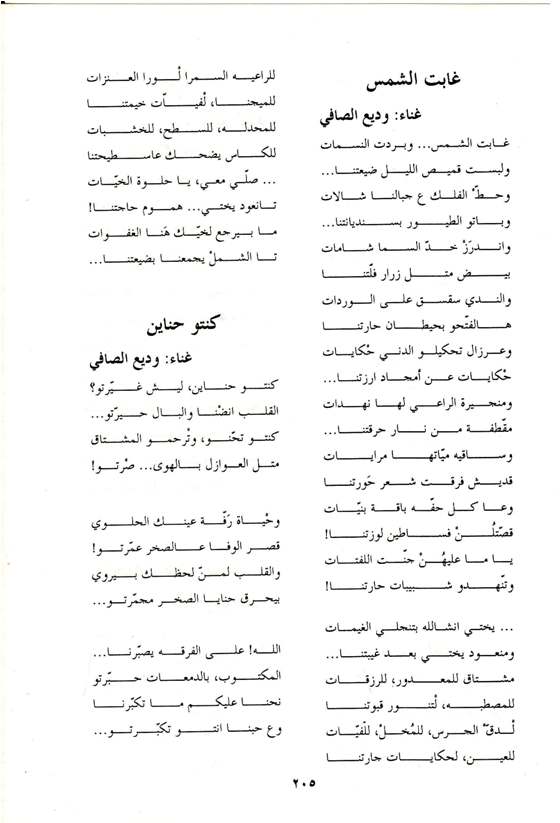 غابت الشمس
غناء: وديع الصافي
غـابـت الشمس... وبـردت النسمـات
ولبست قميص الليـل ضيعتنـا...
وحـطّ الفلـك ع جبالنـا شـالات
وبـاتو الطيـور بسـنديانتنا...
وانـدرَزْ خـدّ السمـا شـامـات
بيـض متـل زرار فلّتنـا
والنـدي سقسـق علـى الـوردات
هـالفتّحو بحيطـان حارتنـا
وعـرزال تحكيلـو الدنـي حْكايـات
حْكايـات عـن أمجـاد ارزتنـا...
ومنجيرة الراعـي لهـا نهـدات
مقْطفـة مـن نـار حرقتنـا...
وسـاقيه ميّاتهـا مرايـات
قديـش فرقـت شعـر حَورتنـا
وعـا كـل حفّـه باقـة بنيّـات
قصّتلُـنْ فسـاطين لوزتنـا!
يـا مـا عليهُـنْ جنّـت اللفتـات
وتنْهـدو شـبيبات حارتنـا!
... يختـي انشالله بتنجلـي الغيمـات
ومنعـود يختـي بعـد غيبتنـا...
مشـتاق للمعـدور، للرزقـات
للمصطبـه، لْتنـور قبوتنـا
لْـدقّ الجـرس، للمُخـلْ، للْفيّـات
للعيـن، لحكايـات حارتنـا
للراعيـه السمـرا لْـورا العنـزات
للميجنـا، لْفيـات خيمتنـا
للمحدلـه، للسـطح، للخشـبات
للكـاس يضحـك عاسـطيحتنا
... صلّـي معـي، يـا حلـوة الخيّـات
تـانعود يختـي... همـوم حاجتنـا!
مـا بيـرجع لخيّـك هَنـا الغفـوات
تـا الشمـلْ يجمعنـا بضيعتنـا...
كنتو حناين
غناء: وديع الصافي
كنتـو حنـاين، ليـش غـيّرتو؟
القلـب انضْنـا والبـال حـيرّتو...
كنتو تحنّـو، وتْرحمـو المشـتاق
متـل العـوازل بـالهوى... صْرتـو!
وحْيـاة رَفّـة عينـك الحلـوي
قصـر الوفـا عـالصخر عمّرتـو!
والقلـب لمـنّ لحظـك بيـروي
بيحـرق حنايـا الصخـر مجمّرتـو...
اللـه! علـى الفرقـه يصبّرنـا...
المكتـوب، بالدمعـات حـبّرتو
نحنـا عليكـم مـا تكبّرنـا
وع حبنـا انتـو تكبّـرتو...
٢٠٥